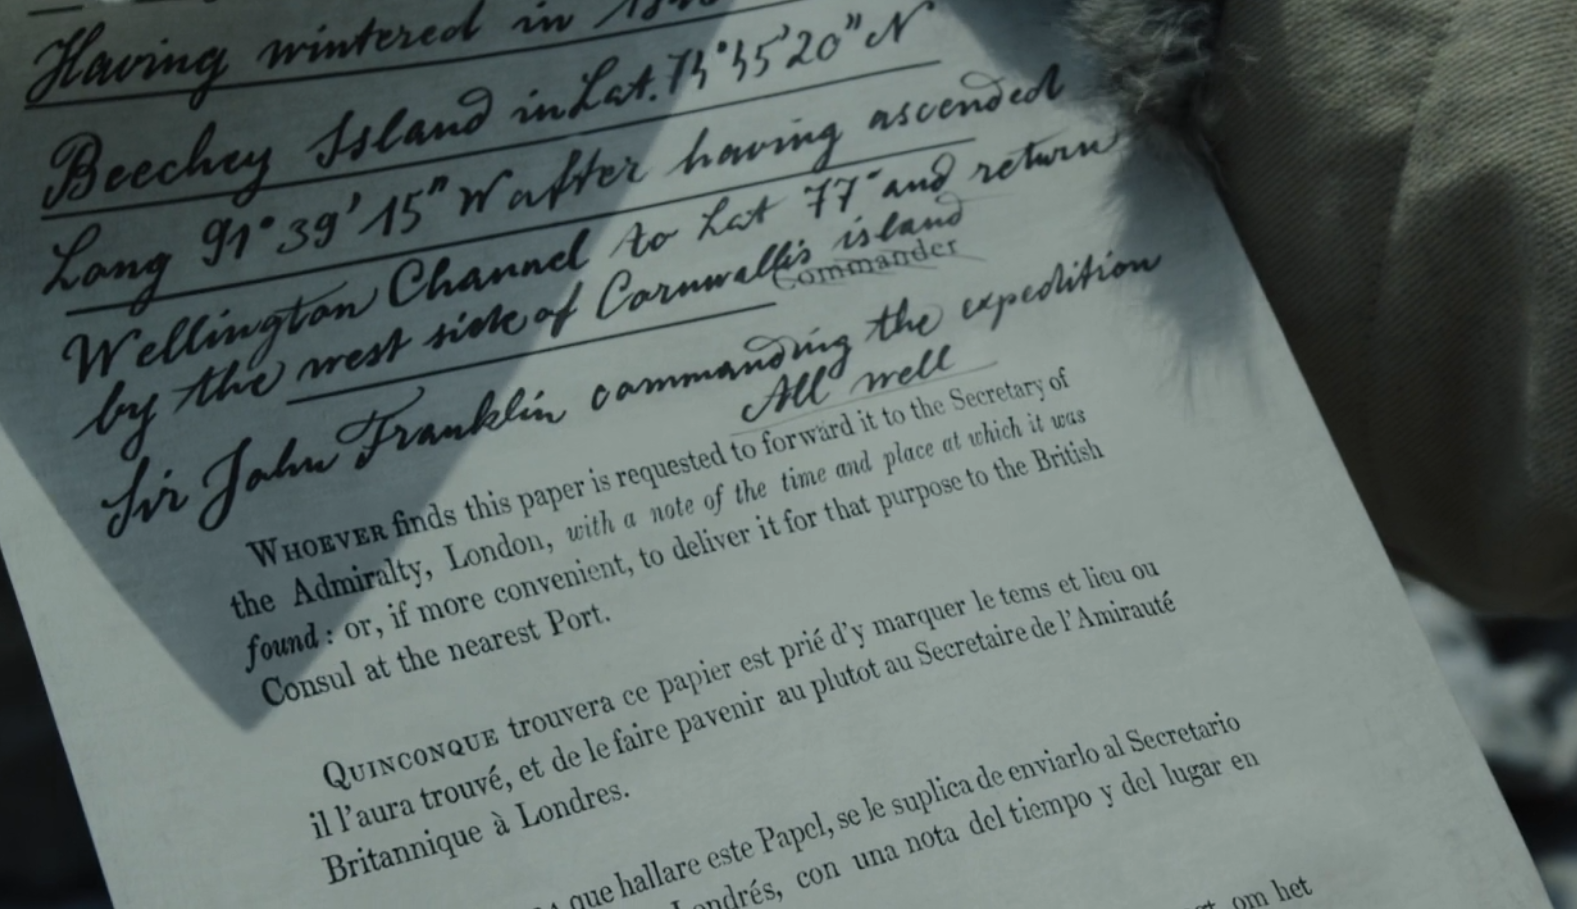 Having wintered in
Beechey Island in Lat. 74°45'20" N
Long 91°39'15" W after having ascended
Wellington Channel to Lat 77° and return
by the west side of Cornwallis island
Commander
Sir John Franklin commanding the expedition
All well
WHOEVER finds this paper is requested to forward it to the Secretary of
the Admiralty, London, with a note of the time and place at which it was
found: or, if more convenient, to deliver it for that purpose to the British
Consul at the nearest Port.
QUINCONQUE trouvera ce papier est prié d'y marquer le tems et lieu ou
il l'aura trouvé, et de le faire pavenir au plutot au Secretaire de l'Amirauté
Britannique à Londres.
que hallare este Papel, se le suplica de enviarlo al Secretario
Londrés, con una nota del tiempo y del lugar en
om het